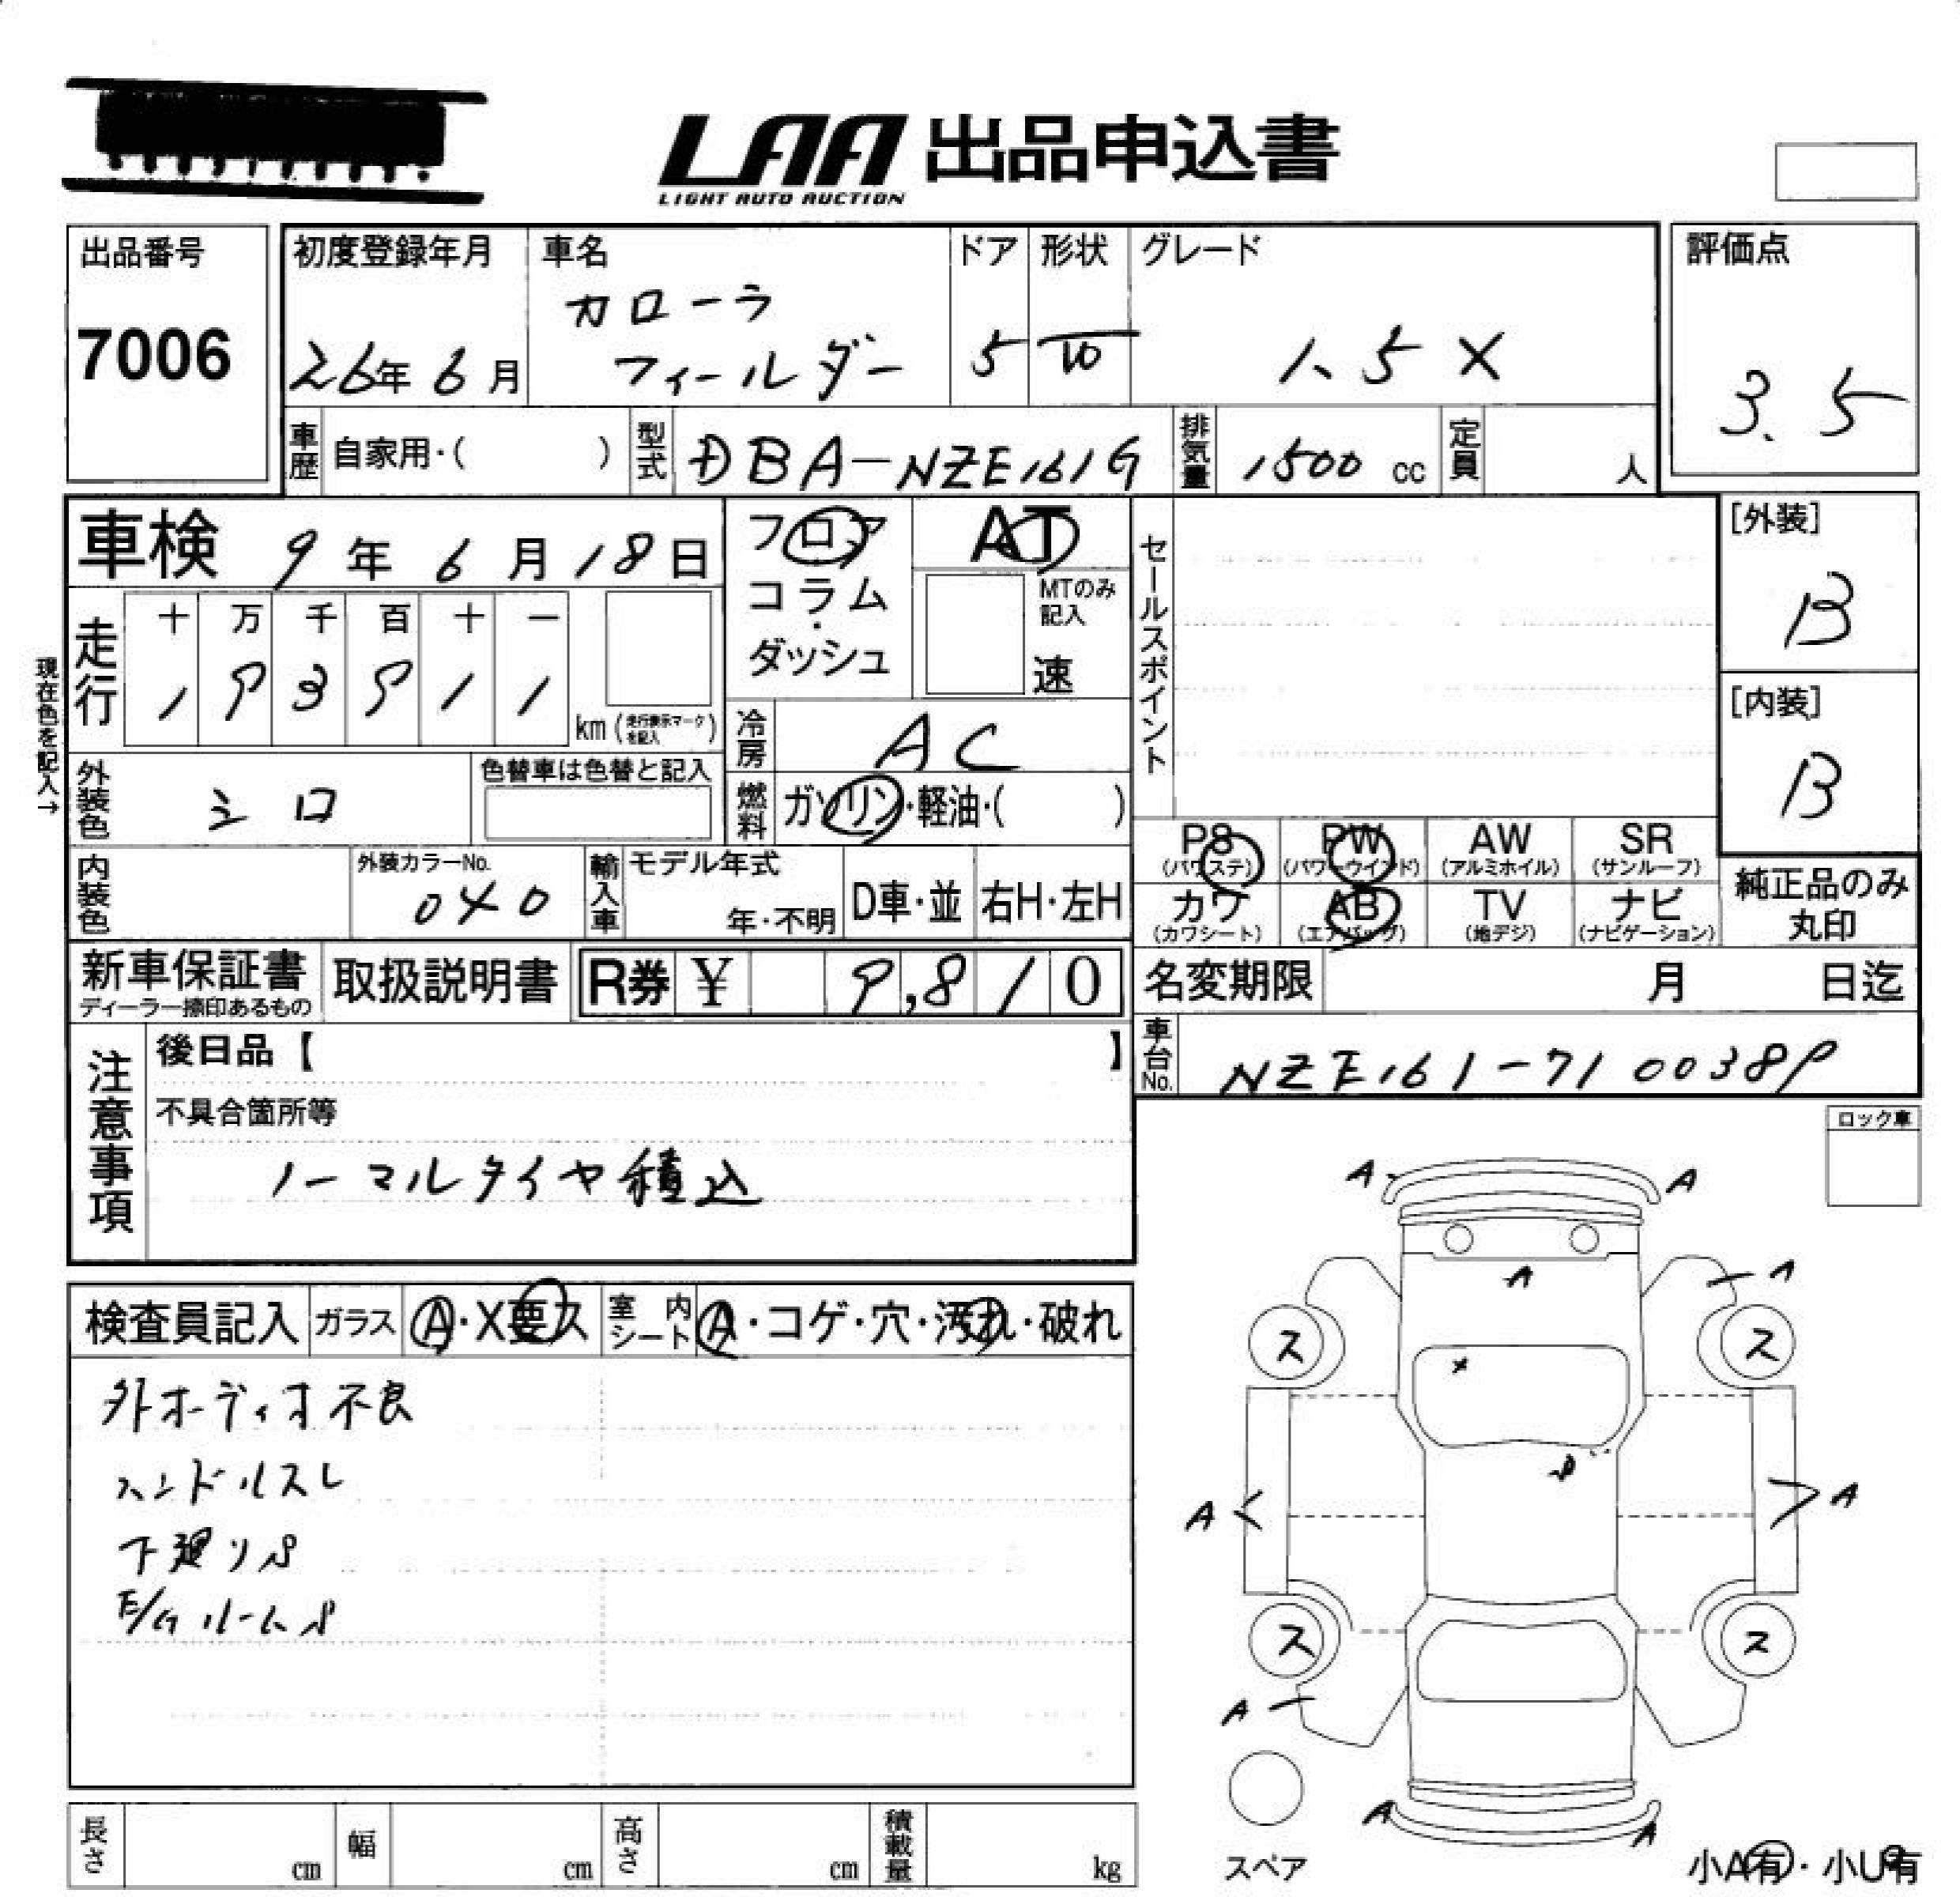 LAA 出品申込書
LIGHT AUTO AUCTION
出品番号
7006
初度登録年月
26年 6月
車名
カローラ
フィールダー
ドア
5
形状
グレード
1.5 X
評価点
3.5
車歴 自家用・( )
型式 DBA-NZE161G
排気量 1500 cc
定員 人
車検 9年 6月 18日
走行
十 万 千 百 十 一
1 9 3 9 1 1
km (走行表示マークを記入)
現在色を記入→
フロア
コラム
・
ダッシュ
AT
MTのみ
記入
速
冷房 AC
燃料 ガソリン・軽油・( )
セールスポイント
[外装]
B
[内装]
B
外装色 シロ
色替車は色替と記入
内装色
外装カラーNo.
040
輸入車 モデル年式
年・不明
D車・並
右H・左H
PS (パワステ)
PW (パワーウインド)
AW (アルミホイル)
SR (サンルーフ)
カワ (カワシート)
AB (エアバッグ)
TV (地デジ)
ナビ (ナビゲーション)
純正品のみ
丸印
新車保証書
ディーラー捺印あるもの
取扱説明書
R券 ¥ 9,810
名変期限 月 日迄
車台No. NZE161-7100389
注意事項
後日品【 】
不具合箇所等
ノーマルタイヤ積込
ロック車
検査員記入
ガラス A・X要ス
室内シート A・コゲ・穴・汚れ・破れ
外オーディオ不良
ハンドルスレ
下廻りS
E/GルームS
A A
A A
ス ス
X
A A
ス ス
A
A A
スペア
小A有・小U有
長さ cm
幅 cm
高さ cm
積載量 kg